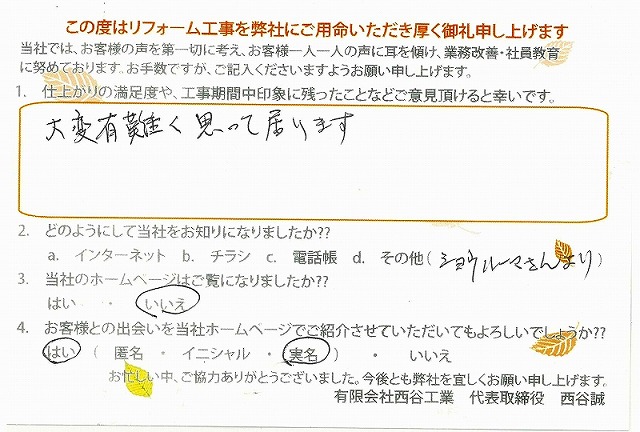 この度はリフォーム工事を弊社にご用命いただき厚く御礼申し上げます
当社では、お客様の声を第一切に考え、お客様一人一人の声に耳を傾け、業務改善・社員教育
に努めております。お手数ですが、ご記入くださいますようお願い申し上げます。
1. 仕上がりの満足度や、工事期間中印象に残ったことなどご意見頂けると幸いです。
大変有難く思って居ります
2. どのようにして当社をお知りになりましたか??
a. インターネット b. チラシ c. 電話帳 d. その他(ショウルーマさんより)
3. 当社のホームページはご覧になりましたか??
はい ・ いいえ
4. お客様との出会いを当社ホームページでご紹介させていただいてもよろしいでしょうか??
はい ( 匿名 ・ イニシャル ・ 実名 ) ・ いいえ
お忙しい中、ご協力ありがとうございました。今後とも弊社を宜しくお願い申し上げます。
有限会社西谷工業 代表取締役 西谷誠